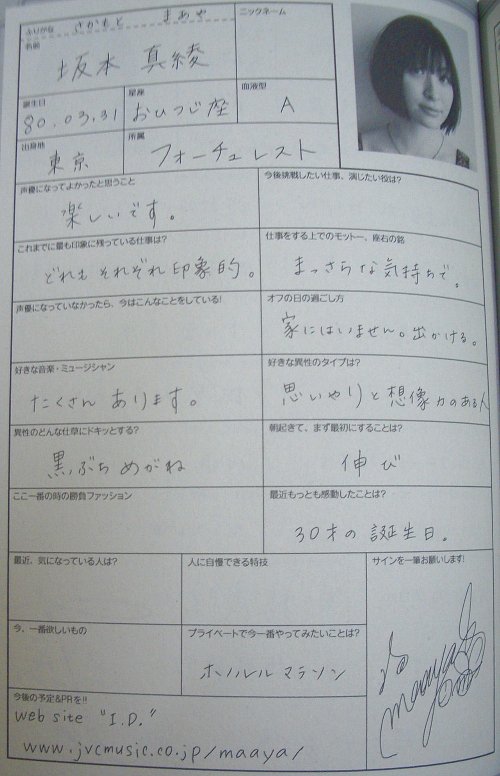 ふりがな さかもと まあや
ニックネーム
名前 坂本 真綾
誕生日 80.03.31
星座 おひつじ座
血液型 A
出身地 東京
所属 フォーチュレスト
声優になってよかったと思うこと
楽しいです。
今後挑戦したい仕事、演じたい役は?
これまでに最も印象に残っている仕事は?
どれもそれぞれ印象的。
仕事をする上でのモットー、座右の銘
まっさらな気持ちで。
声優になっていなかったら、今はこんなことをしている!
オフの日の過ごし方
家にはいません。出かける。
好きな音楽・ミュージシャン
たくさんあります。
好きな異性のタイプは?
思いやりと想像力のある人
異性のどんな仕草にドキッとする?
黒ぶちめがね
朝起きて、まず最初にすることは?
伸び
ここ一番の時の勝負ファッション
最近もっとも感動したことは?
30才の誕生日。
最近、気になっている人は?
人に自慢できる特技
サインを一筆お願いします!
今、一番欲しいもの
プライベートで今一番やってみたいことは?
ホノルルマラソン
maaya
今後の予定&PRを!!
web site "I.D."
www.jvcmusic.co.jp/maaya/